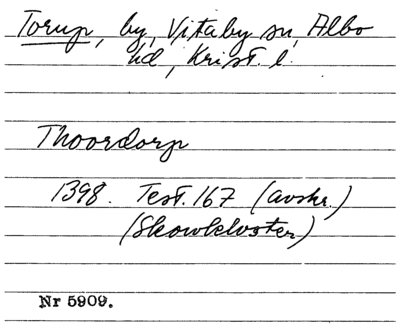 Torup, by, Vitaby sn, Albo
hd, Krist. l.
Thoordorp
1398. Test. 167 (avskr.)
(Skowkloster)
Nr 5909.